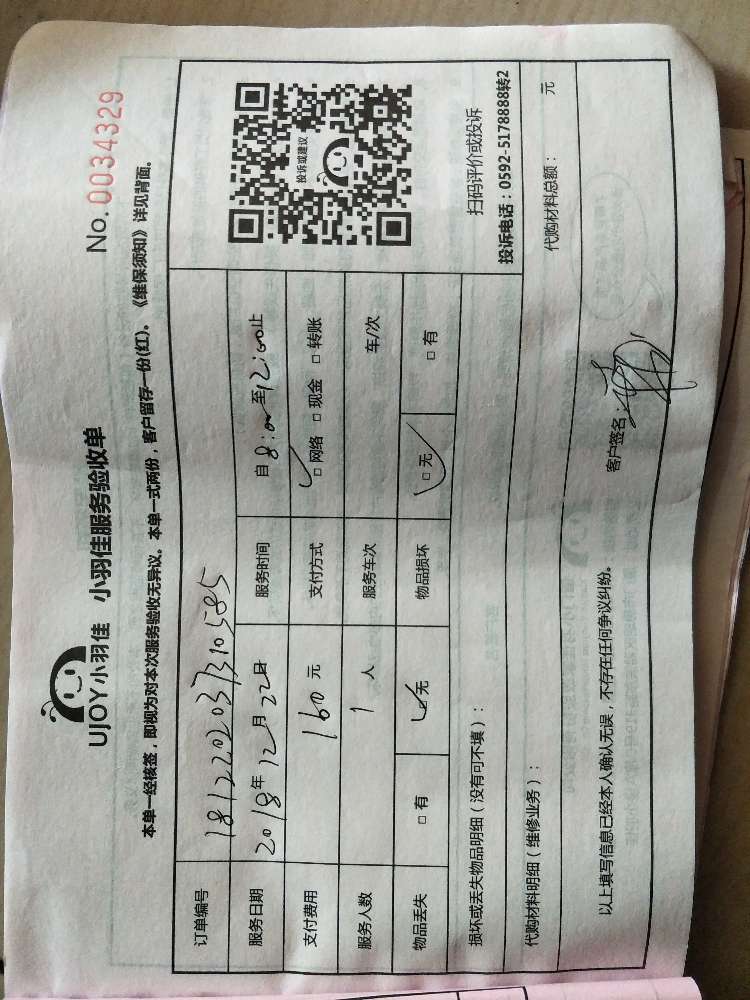 UJOY小羽佳 小羽佳服务验收单
No. 0034329
本单一经核签，即视为对本次服务验收无异议。本单一式两份，客户留存一份(红)。《维保须知》详见背面。
订单编号 1812202037310585
服务日期 2018年12月22日 服务时间 自8:00至12:00止
支付费用 160元 支付方式 □网络 □现金 □转账
服务人数 1人 服务车次 车/次
物品丢失 □有 □无 物品损坏 □无 □有
投诉或建议
扫码评价或投诉
投诉电话：0592-5178888转2
损坏或丢失物品明细（没有可不填）：
代购材料明细（维修业务）： 代购材料总额： 元
以上填写信息已经本人确认无误，不存在任何争议纠纷。 客户签名：